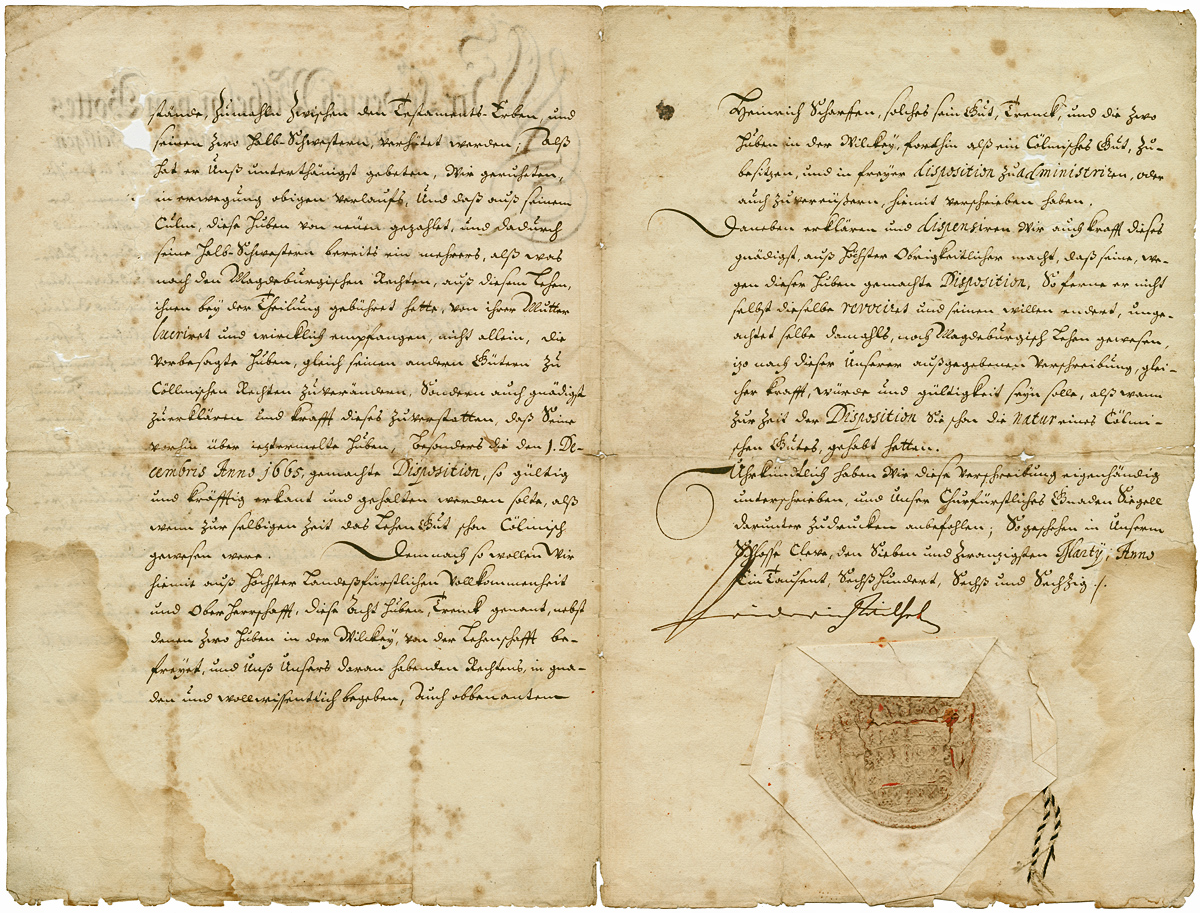 stände, Zumahln Zwischen den Testaments-Erben, und
seinen Zwo Halb-Schwestern, verhütet werden; Alß
hat er Unß unterthänigst gebeten, Wir geruheten,
in erwegung obigen verlaufs, Und daß auß seinem
Culm, diese Huben von neuen gezahlet, und dadurch
seine Halb-Schwestern bereits ein mehrers, alß was
nach den Magdeburgischen Rechten, auß diesem Lehen,
ihnen bey der Theilung gebühret hette, von ihrer Mutter
lucriret und wircklich empfangen, nicht allein, die
Vorbesagte Huben, gleich seinen andern Gütern Zu
Cöllmischen Rechten Zuverändern, Sondern auch gnädigst
Zuerklären und krafft dieses Zuverstatten, daß Seine
vorhin über ieztermelte Huben, Besonders die den 1. De-
cembris Anno 1665, gemachte Disposition, so gültig
und kräfftig erkant und gehalten werden solte, alß
wenn Zur selbigen Zeit das Lehen Gut schon Cölmisch
gewesen were. Demnach so wollen Wir
hiemit auß Höchster Landesfürstlichen Vollkommenheit
und Ober Herrschafft, diese Acht Huben, Trenck genant, nebst
denen Zwo Huben in der Wilckey, von der Lehenschafft be-
freyet, und Unß Unsers daran habenden Rechtens, in gna-
den und wollwissentlich begeben, Auch obbenantem
Heinrich Scharffen, solches sein Gut, Trenck, und die Zwo
Huben in der Wilckey, forthin alß ein Cölmisches Gut, Zu-
besitzen, und in freyer disposition Zu administriren, oder
auch Zuvereüßern, hiemit verschrieben haben.
Daneben erklären und dispensiren Wir auch krafft dieses
gnädigst, auß Höchster Obrigkeitlicher macht, daß seine, we-
gen dieser Huben gemachte Disposition, So ferne er nicht
selbst dieselbe revociret und seinen willen endert, unge-
achtet selbe damahls, noch Magdeburgisch Lehen gewesen,
izo nach dieser Unserer außgegebenen Verschreibung, glei-
cher krafft, würde und gültigkeit seyn solle, alß wann
Zur Zeit der Disposition Sie schon die natur eines Cölmi-
schen Gutes, gehabt hetten.
Uhrkündtlich haben Wir diese Verschreibung eigenhändig
unterschrieben, und Unser Churfürstliches Gnaden Siegell
darunter Zudrucken anbefohlen; So geschehen in Unserm
Schlosse Cleve, den Sieben und Zwanzigsten Martij, Anno
Ein Tausent, Sechß Hundert, Sechß und Sechzig.
Friderich Wilhelm